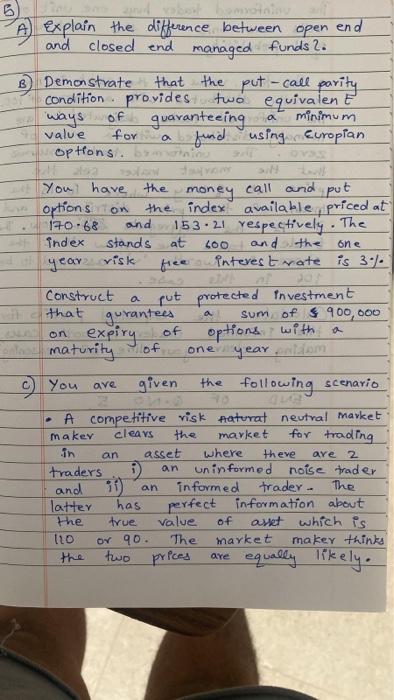 B)
A) Explain the difference between open end
and closed end managed funds?.
B) Demonstrate that the put - call parity
condition. provides two equivalent
ways of guaranteeing a minimum
value for a fund using Europian
options.
You, have the money call and put
options on the index available, priced at
170.68 and 153.21 respectively. The
index stands at 600 and the one
year risk free interest rate is 3%.
Construct a put protected investment
that gurantees a sum of $ 900,000
on expiry of options with a
maturity of one year
C) You are given the following scenario
• A competitive risk natural neutral market
maker clears the market for trading
in an asset where there are 2
traders i) an uninformed noise trader
and ii) an informed trader. The
latter has perfect information about
the true value of asset which is
110 or 90. The market maker thinks
the two prices are equally likely.